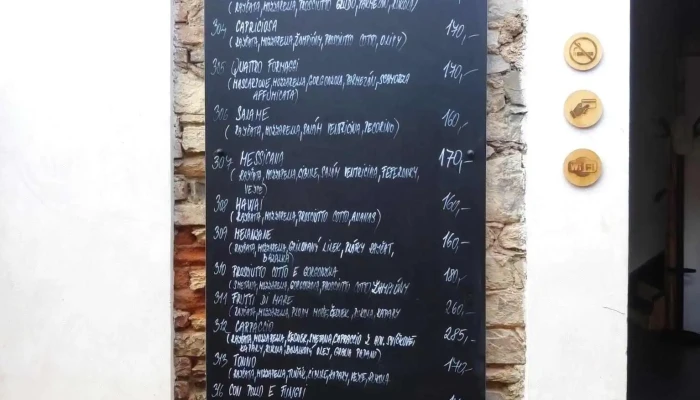 ( RAJČATA, MOZZARELLA, PROSCIUTTO CRUDO, PARMEZÁN, RUCOLA)
304 CAPRICIOSA 170,-
( RAJČATA, MOZZARELLA, ŽAMPIÓNY, PROSCIUTTO COTTO, OLIVY )
305 QUATTRO FORMAGGI 170,-
( MASCARPONE, MOZZARELLA, GORGONZOLA, PARMEZÁN, SCAMORZA
AFFUMICATA)
306 SALAME 160,-
( RAJČATA, MOZZARELLA, SALÁM VENTRICINA, PECORINO)
307 MESSICANA 170,-
( RAJČATA, MOZZARELLA, CIBULE, SALÁM VENTRICINA, FEFERONKY,
VEJCE)
308 HAWAI 160,-
( RAJČATA, MOZZARELLA, PROSCIUTTO COTTO, ANANAS)
309 MELANZANE 160,-
( RAJČATA, MOZZARELLA, GRILOVANÝ LILEK, RAJČAT,
BAZALKA)
310 PROSCIUTTO COTTO E GORGONZOLA 180,-
( SMETANA, MOZZARELLA, GORGONZOLA, PROSCIUTTO COTTO, ŽAMPIÓNY
311 FRUTTI DI MARE 260,-
( RAJČATA, MOZZARELLA, PLODY MOŘE, ČESNEK, RUKOLA, KAPARY
312 CARPACCIO 285,-
( RAJČATA, MOZZARELLA, ČESNEK, SMETANA, CARPACCIO Z HOV. SVÍČKOVÉ,
KAPARY, RUKOLA, OLEJ, GRANA PADANO)
313 TONNO 170,-
( RAJČATA, MOZZARELLA, TUŇÁK, CIBULE, KAPARY, VEJCE, RUKOLA
316 CON POLLO E FUNGHI
WI FI